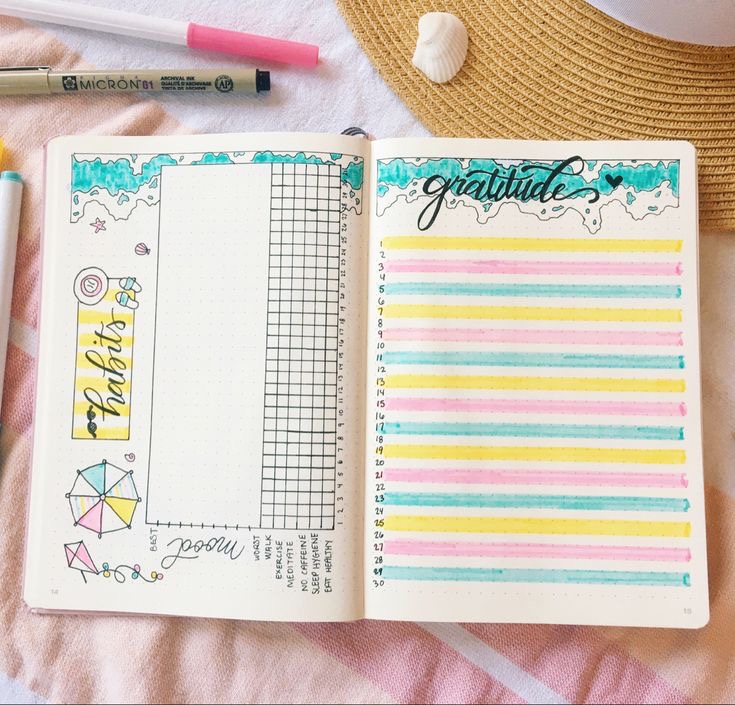 MICRON 01
ARCHIVAL INK
QUALITÉ D'ARCHIVES
AP
habits
BEST
mood
WORST
WALK
EXERCISE
MEDITATE
NO CAFFEINE
SLEEP HYGIENE
EAT HEALTHY
1 2 3 4 5 6 7 8 9 10 11 12 13 14 15 16 17 18 19 20 21 22 23 24 25 26 27 28 29 30
14
gratitude
1
2
3
4
5
6
7
8
9
10
11
12
13
14
15
16
17
18
19
20
21
22
23
24
25
26
27
28
29
30
15